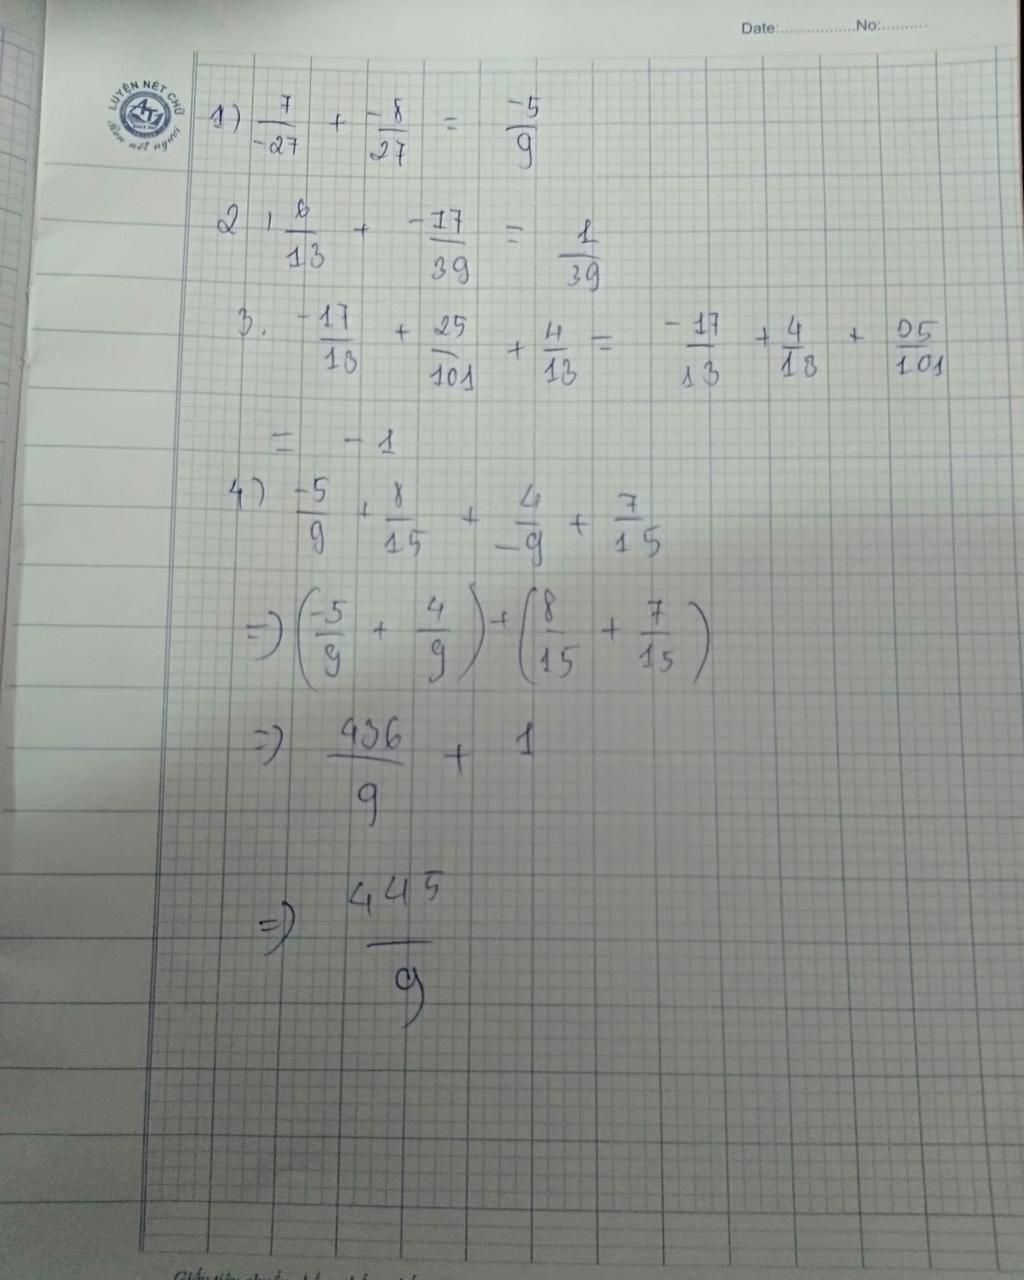 Date:.................No:..........
LUYỆN NÉT CHỮ
AT
Rèn nết người
1) 7/-27 + -8/27 = -5/9
2, 6/13 + -17/39 = 1/39
3. -17/13 + 25/101 + 4/13 = -17/13 + 4/13 + 25/101
= -1
4) -5/9 + 8/15 + 4/-9 + 7/15
=> (-5/9 + 4/9) + (8/15 + 7/15)
=> 436/9 + 1
=> 445/9